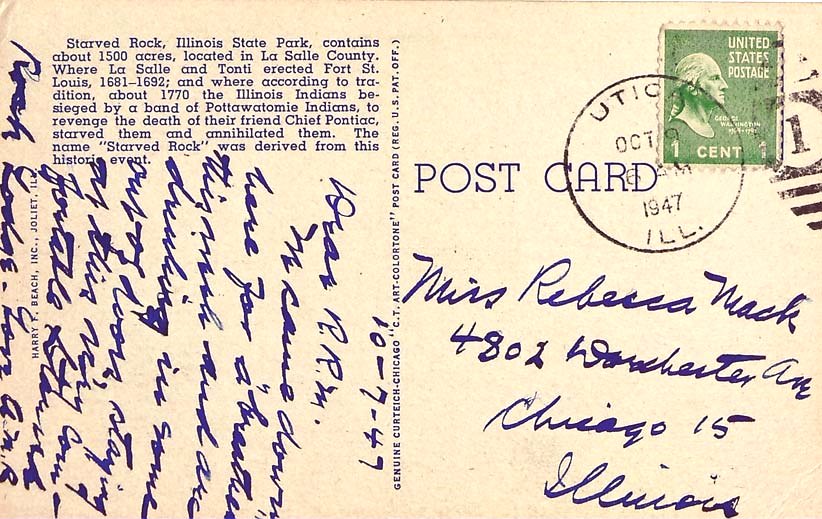 Starved Rock, Illinois State Park, contains
about 1500 acres, located in La Salle County.
Where La Salle and Tonti erected Fort St.
Louis, 1681-1692; and where according to tra-
dition, about 1770 the Illinois Indians be-
sieged by a band of Pottawatomie Indians, to
revenge the death of their friend Chief Pontiac,
starved them and annihilated them. The
name "Starved Rock" was derived from this
historic event.
HARRY F. BEACH, INC., JOLIET, ILL.
GENUINE CURTEICH-CHICAGO "C.T. ART-COLORTONE" POST CARD (REG. U.S. PAT. OFF.)
POST CARD
UNITED
STATES
POSTAGE
GEORGE
WASHINGTON
1 CENT 1
UTICA
OCT 9
AM
1947
ILL.
1
10-7-47
Dear R.R.M.
We came down
here for a "breather"
this week and are
drinking in some
out of doors, staying
at this very com-
fortable Starved
Rock Lodge - Love
Miss Rebecca Mack
4802 Worchester Ave
Chicago 15
Illinois